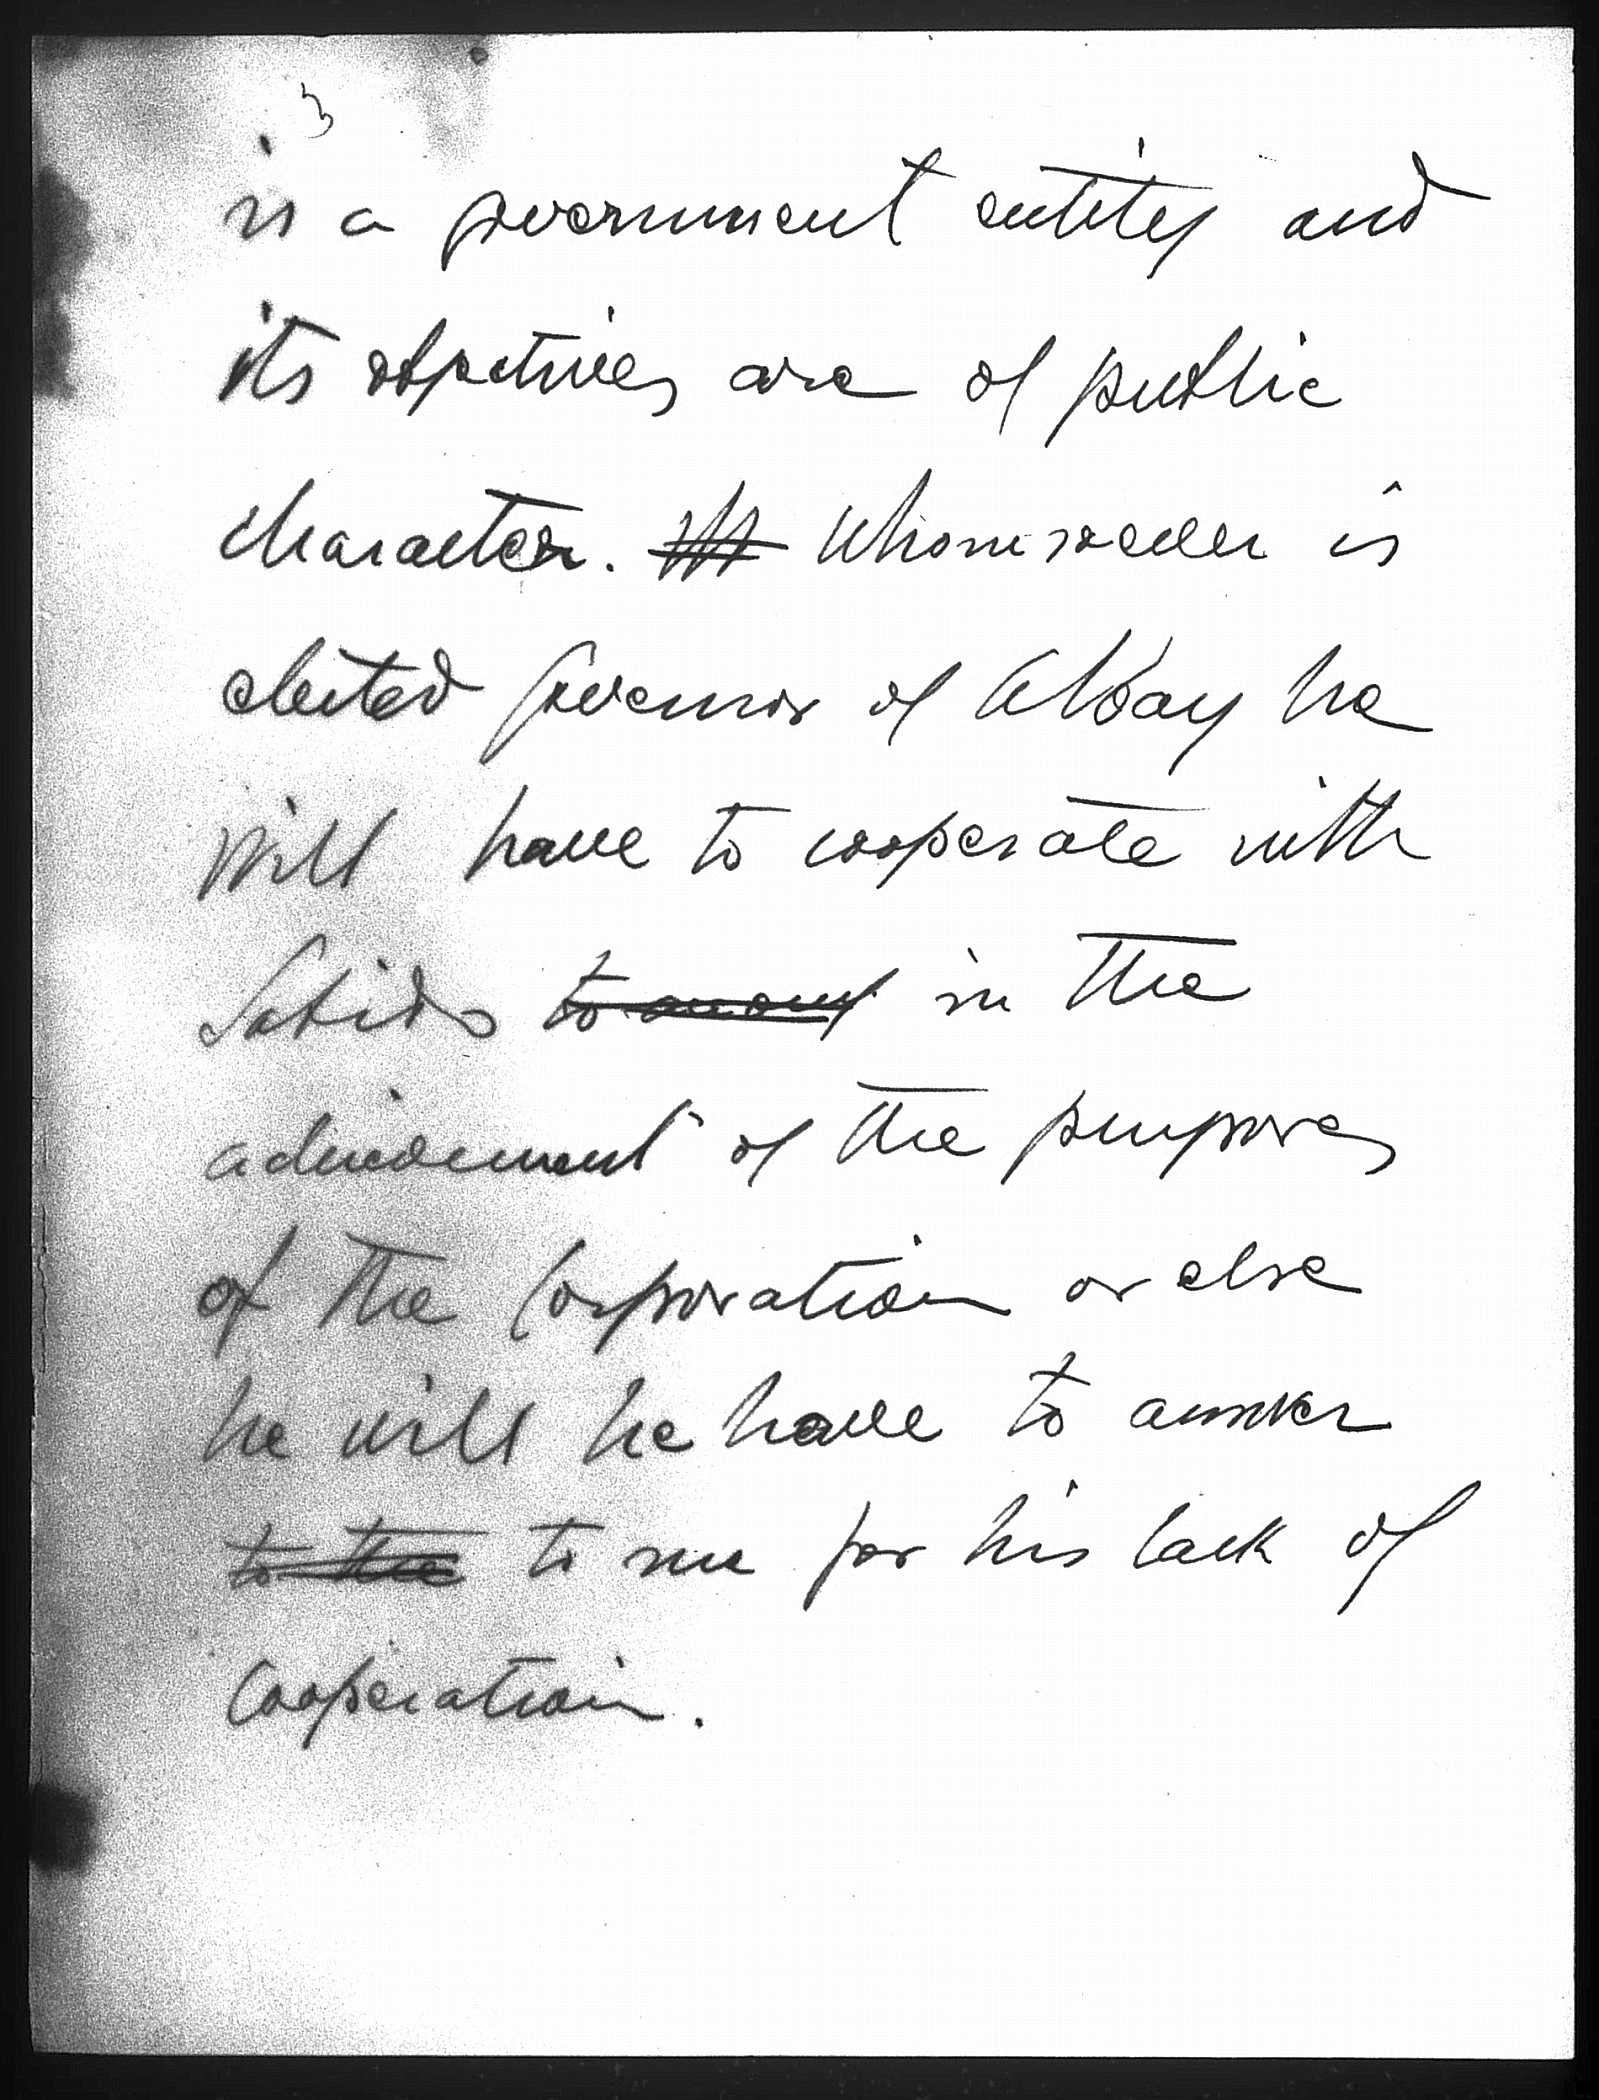 3
is a government entity and
its objectives are of public
character. Whomsoever is
elected Governor of Albay he
will have to cooperate with
Sabido in the
achievement of the purposes
of the Corporation or else
he will he have to answer
to the to me for his lack of
cooperation.